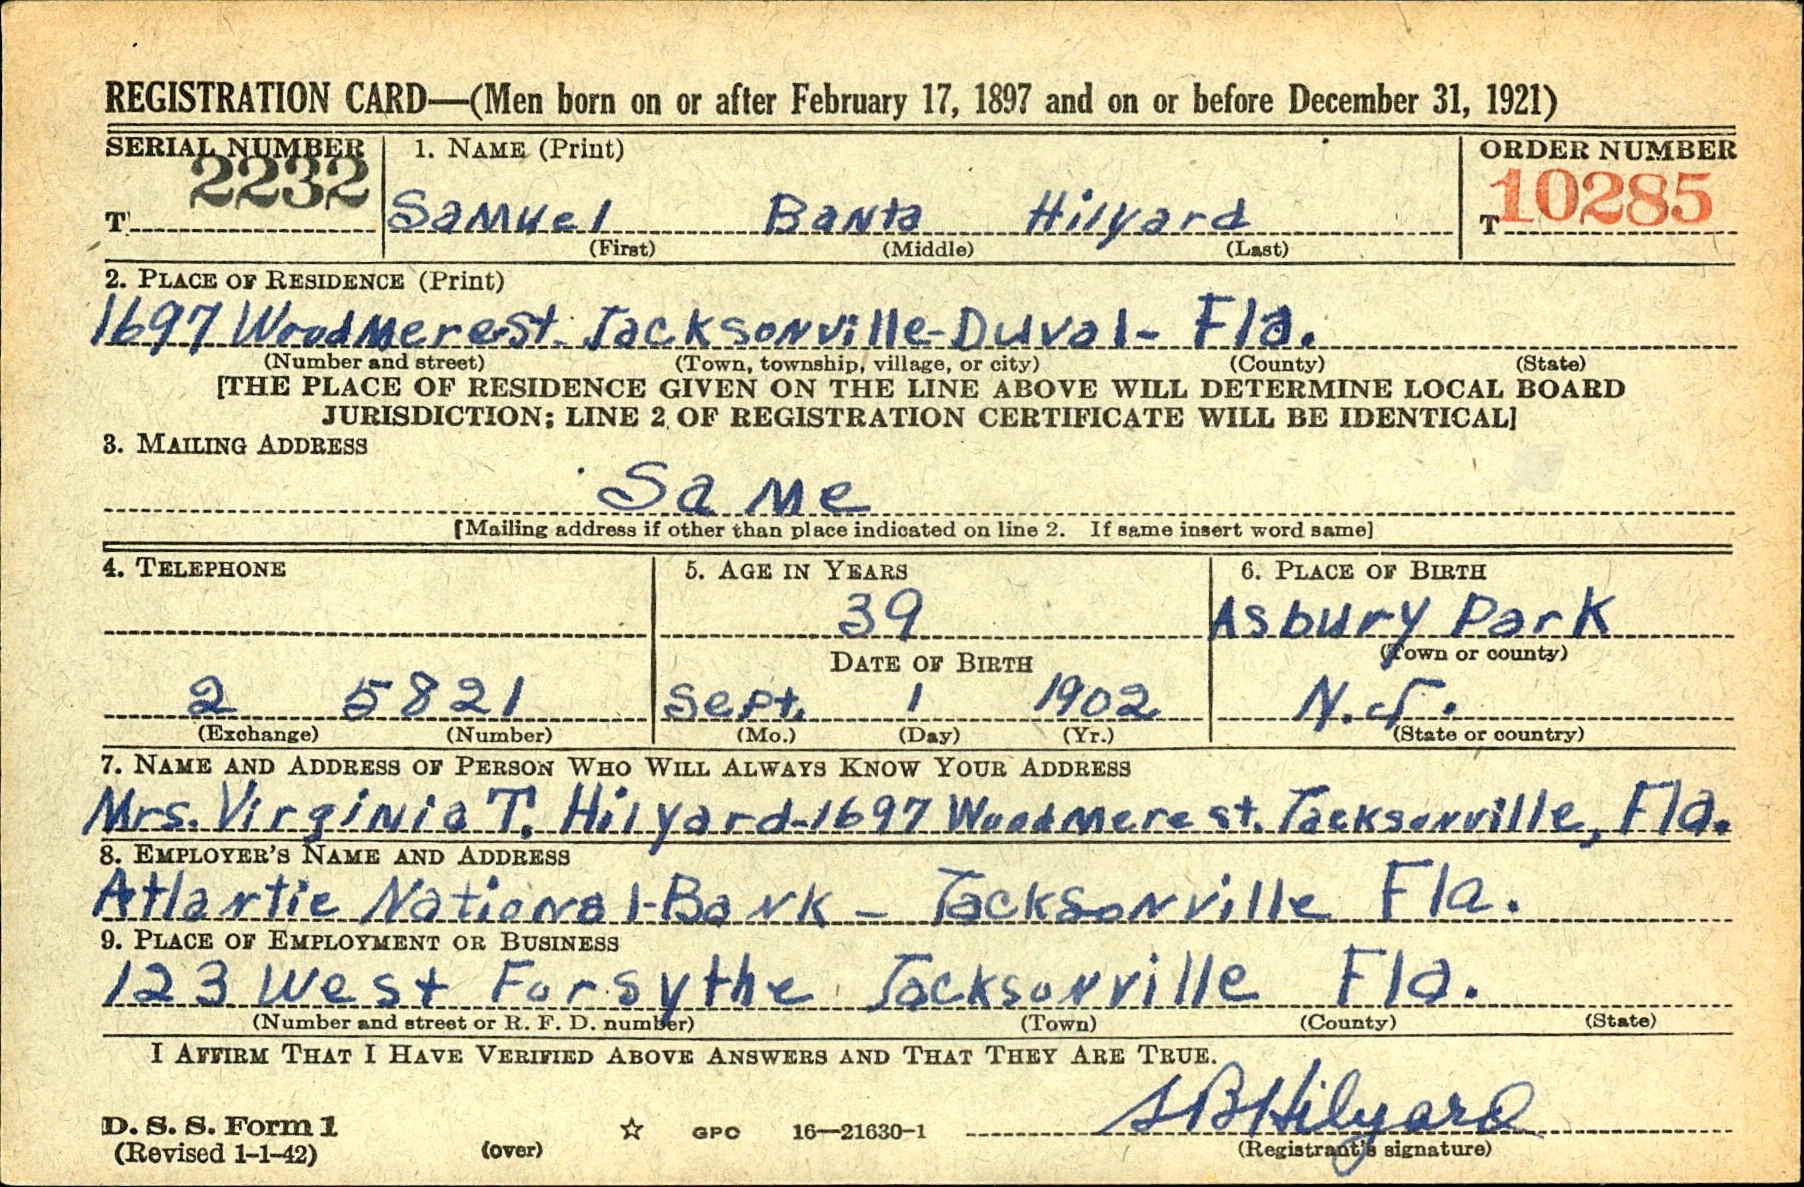 REGISTRATION CARD—(Men born on or after February 17, 1897 and on or before December 31, 1921)
SERIAL NUMBER 1. NAME (Print) ORDER NUMBER
T 2232 Samuel Banta Hilyard T 10285
(First) (Middle) (Last)
2. PLACE OF RESIDENCE (Print)
1697 Woodmere St. Jacksonville-Duval- Fla.
(Number and street) (Town, township, village, or city) (County) (State)
[THE PLACE OF RESIDENCE GIVEN ON THE LINE ABOVE WILL DETERMINE LOCAL BOARD
JURISDICTION; LINE 2 OF REGISTRATION CERTIFICATE WILL BE IDENTICAL]
3. MAILING ADDRESS
Same
[Mailing address if other than place indicated on line 2. If same insert word same]
4. TELEPHONE 5. AGE IN YEARS 6. PLACE OF BIRTH
39 Asbury Park
DATE OF BIRTH (Town or county)
2 5821 Sept. 1 1902 N.J.
(Exchange) (Number) (Mo.) (Day) (Yr.) (State or country)
7. NAME AND ADDRESS OF PERSON WHO WILL ALWAYS KNOW YOUR ADDRESS
Mrs. Virginia T. Hilyard-1697 Woodmere st. Jacksonville, Fla.
8. EMPLOYER'S NAME AND ADDRESS
Atlantic National-Bank - Jacksonville Fla.
9. PLACE OF EMPLOYMENT OR BUSINESS
123 West Forsythe Jacksonville Fla.
(Number and street or R. F. D. number) (Town) (County) (State)
I AFFIRM THAT I HAVE VERIFIED ABOVE ANSWERS AND THAT THEY ARE TRUE.
S B Hilyard
D. S. S. Form 1
(Revised 1-1-42) (over) ☆ GPO 16—21630-1 (Registrant's signature)